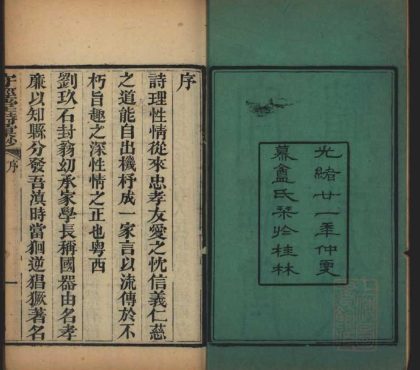 光緒廿一秊仲夏
慕盦氏栞於桂林
序
詩理性情從來忠孝友愛之忱信義仁慈
之道能自出機杼成一家言以流傳於不
朽旨趣之深性情之正也粵西
劉玖石封翁幼承家學長稱國器由名孝
廉以知縣分發吾滇時當狪逆猖獗著名
序 一